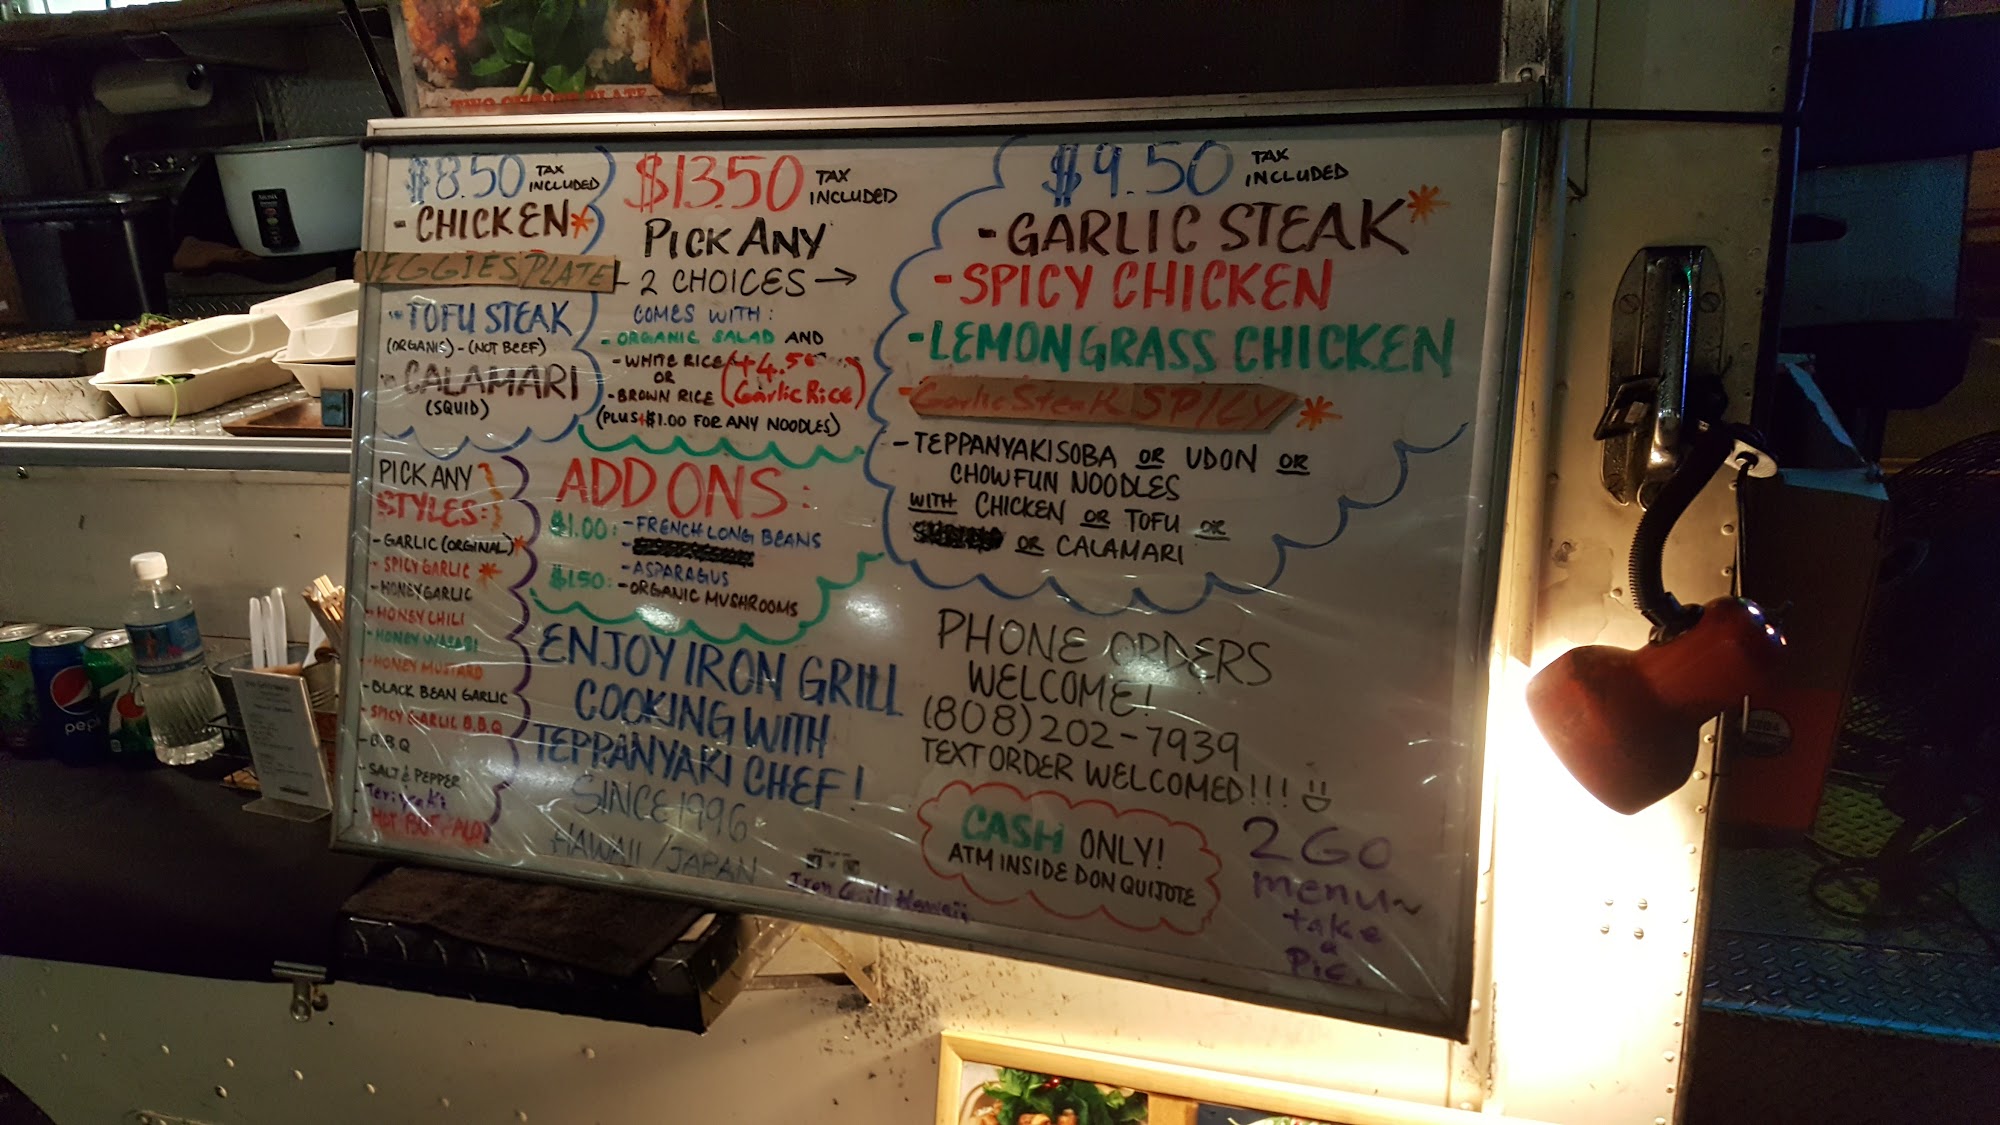 TWO CHOICE PLATE
$8.50 TAX INCLUDED
- CHICKEN*
VEGGIES PLATE
- TOFU STEAK
(ORGANIC) - (NOT BEEF)
- CALAMARI
(SQUID)
$13.50 TAX INCLUDED
PICK ANY
2 CHOICES →
COMES WITH:
- ORGANIC SALAD AND
- WHITE RICE
OR
- BROWN RICE (Garlic Rice)
(PLUS $1.00 FOR ANY NOODLES)
$9.50 TAX INCLUDED
- GARLIC STEAK*
- SPICY CHICKEN
- LEMONGRASS CHICKEN
- Garlic Steak SPICY *
- TEPPANYAKI SOBA OR UDON OR
CHOWFUN NOODLES
WITH CHICKEN OR TOFU OR
OR CALAMARI
PICK ANY
STYLES:
- GARLIC (ORGINAL)*
- SPICY GARLIC *
- HONEY GARLIC
- HONEY CHILI
- HONEY WASABI
- HONEY MUSTARD
- BLACK BEAN GARLIC
- SPICY GARLIC B.B.Q
- B.B.Q
- SALT & PEPPER
- Teriyaki
- HOT BUFFALO
ADD ONS:
$1.00: - FRENCH LONG BEANS
- ASPARAGUS
$1.50: - ORGANIC MUSHROOMS
ENJOY IRON GRILL
COOKING WITH
TEPPANYAKI CHEF!
SINCE 1996
HAWAII/JAPAN
Iron Grill Hawaii
PHONE ORDERS
WELCOME!
(808) 202-7939
TEXT ORDER WELCOMED!!!
CASH ONLY!
ATM INSIDE DON QUIJOTE
2 GO
menu~
take
a
Pic.
pepsi
7